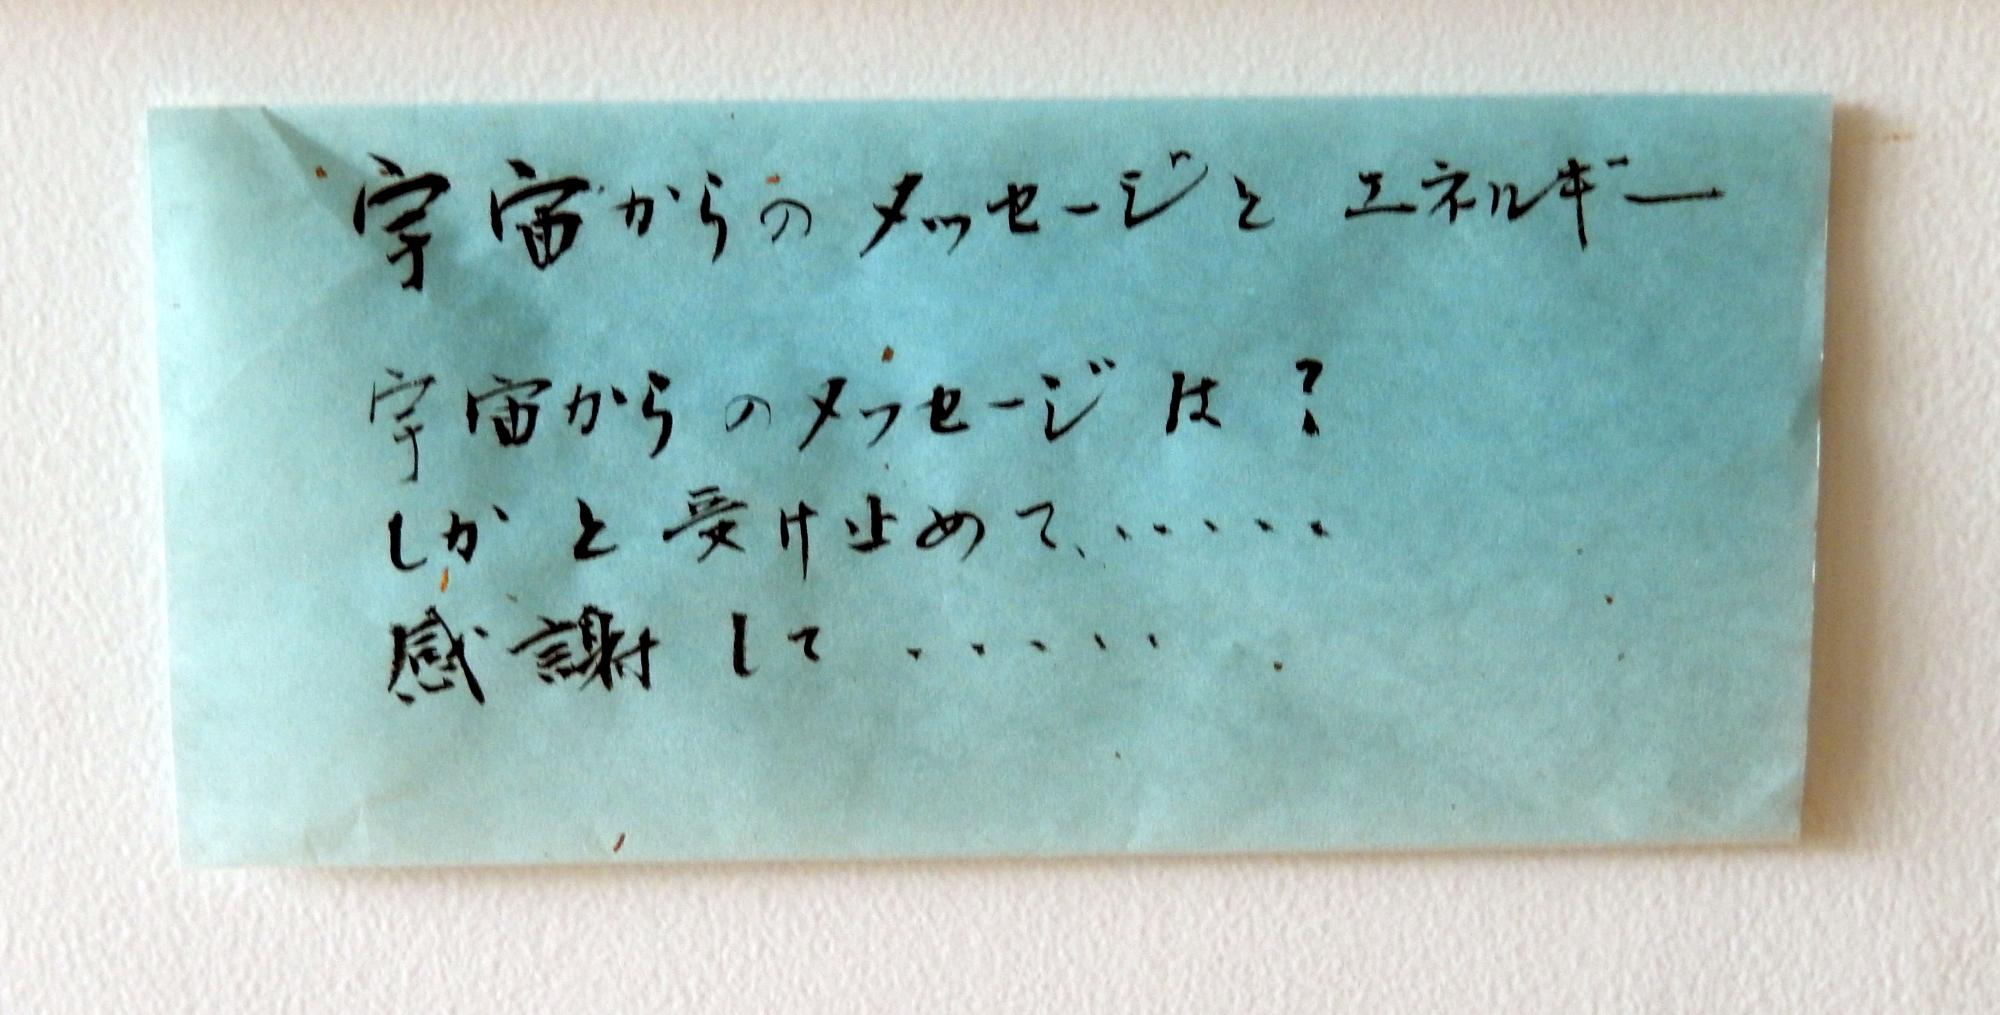 宇宙からのメッセージと エネルギー
宇宙からのメッセージは?
しかと受け止めて、・・・・・
感謝して・・・・・